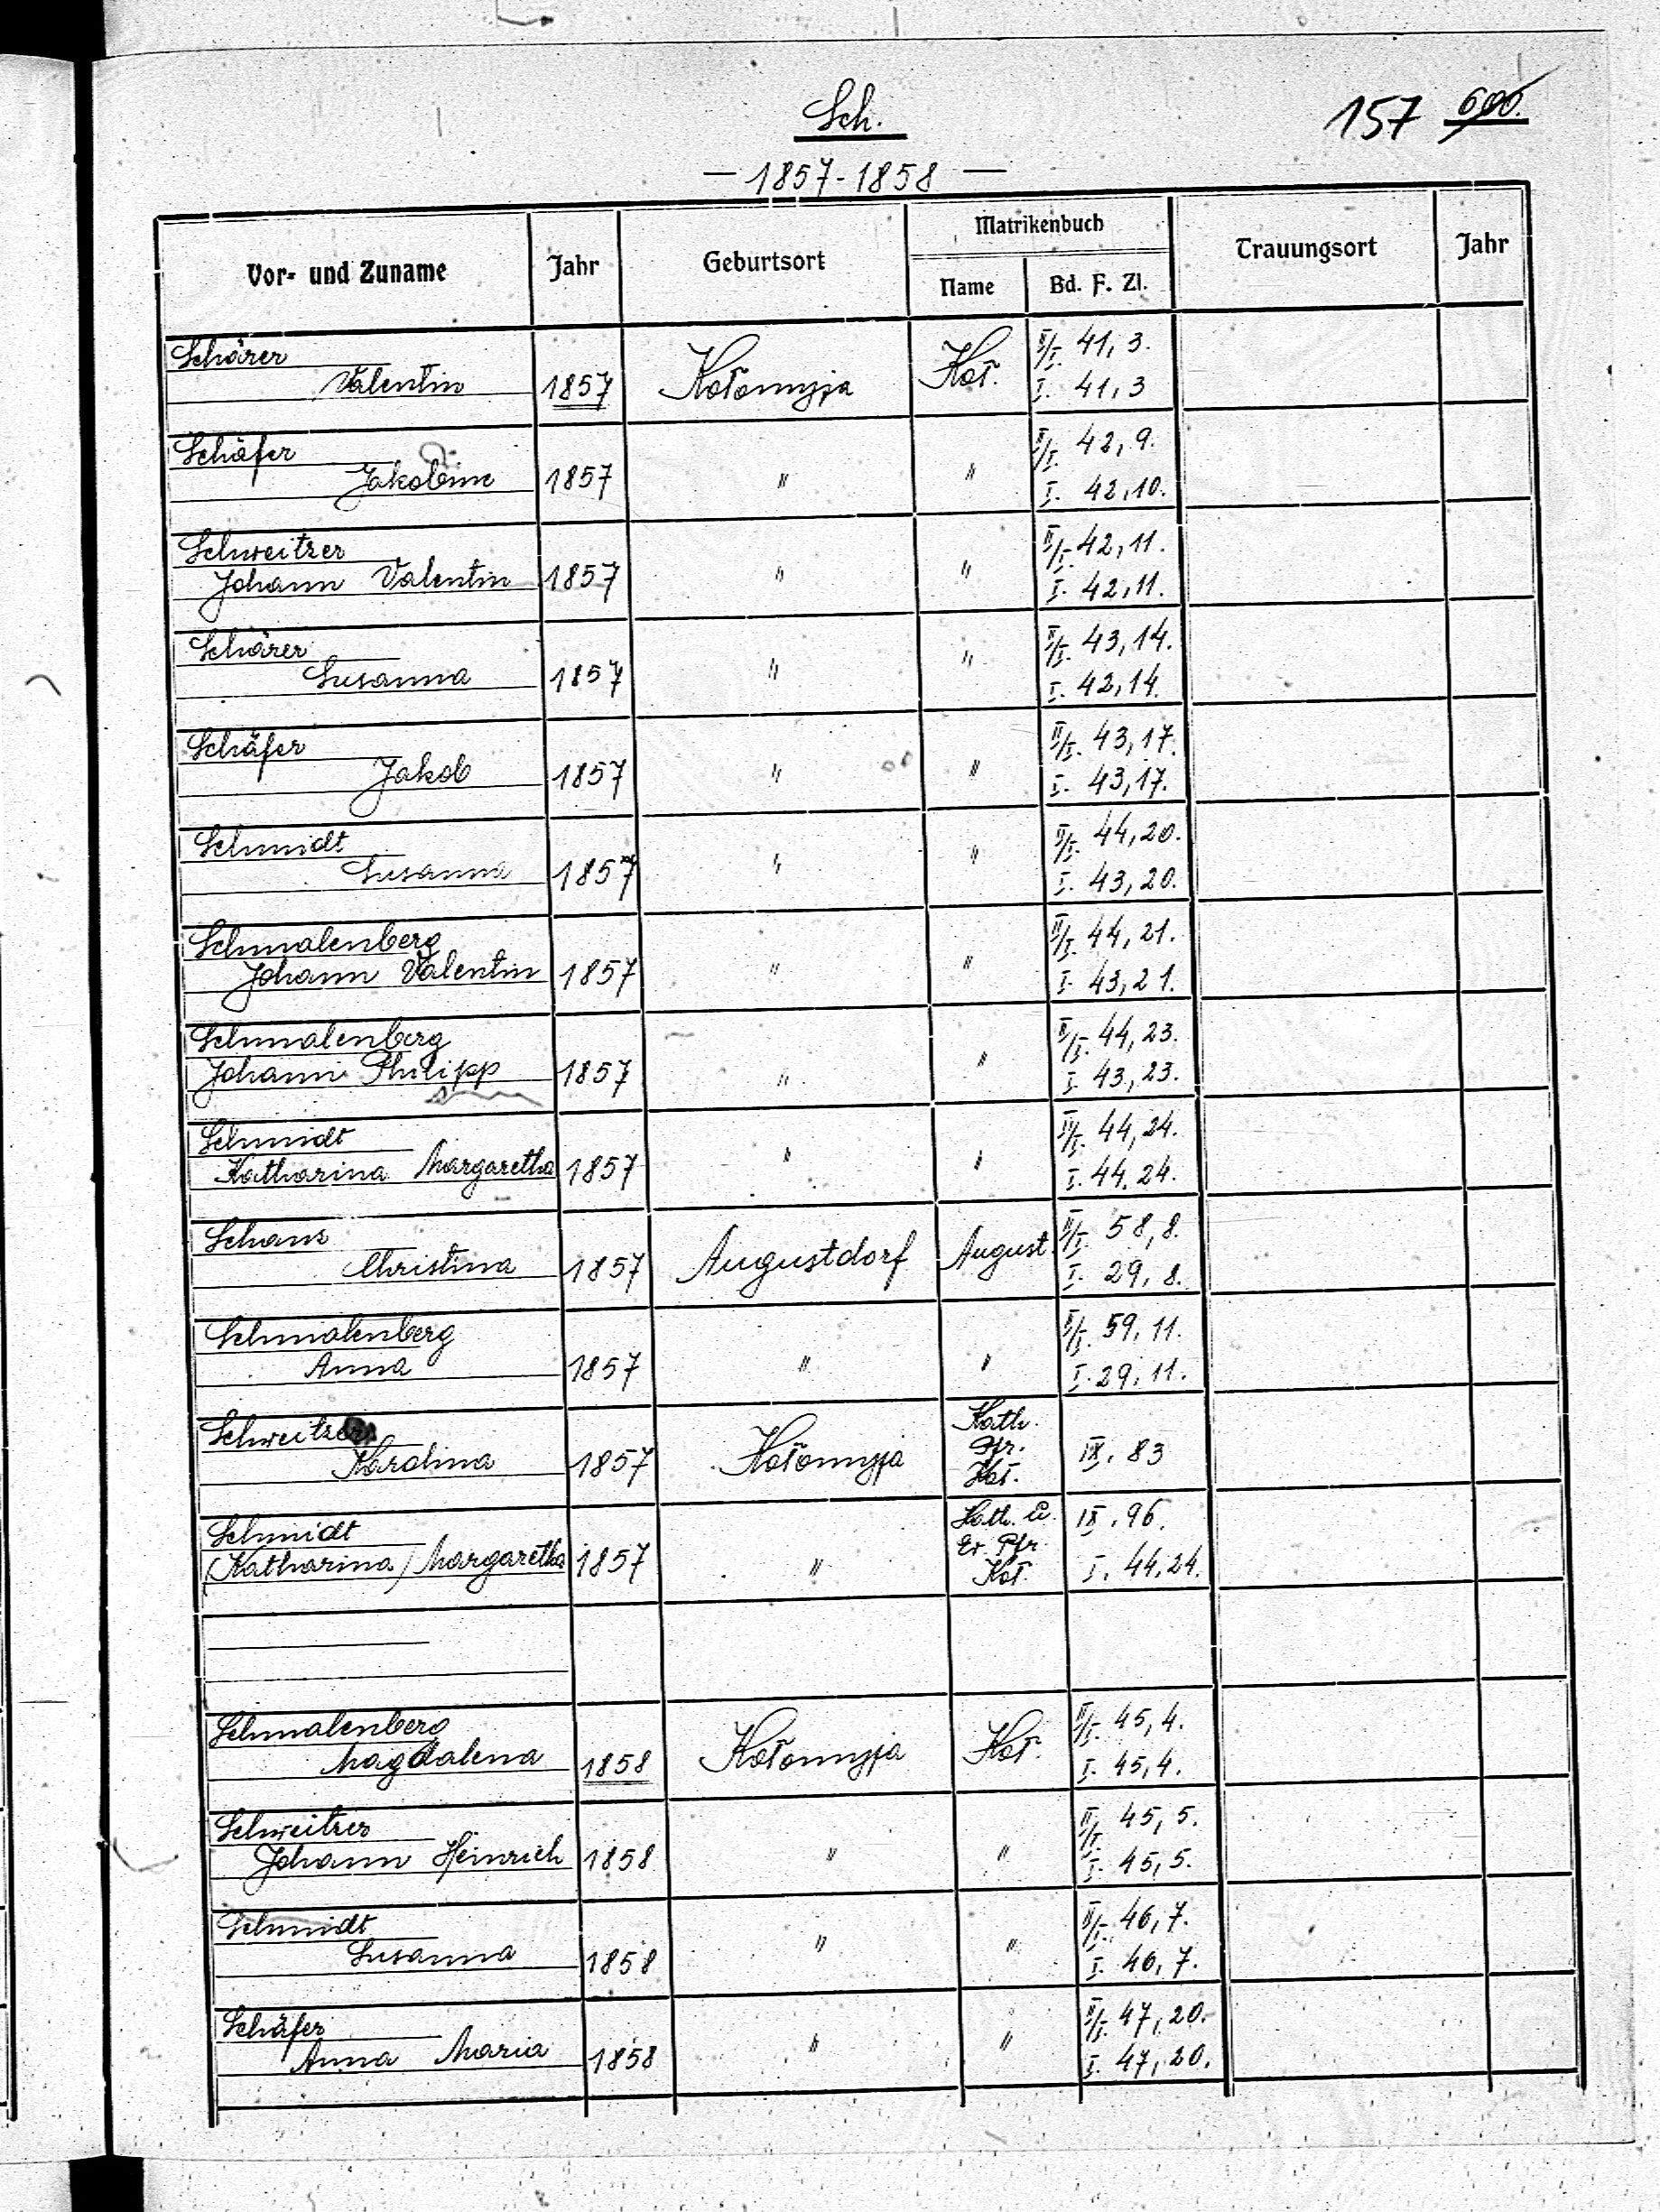 Sch.
157 600.
— 1857-1858 —
Vor- und Zuname Jahr Geburtsort Matrikenbuch Trauungsort Jahr
Name Bd. F. Zl.
Schärer II/I. 41, 3.
Valentin 1857 Kołomyja Koł. I. 41, 3
Schäfer II/I. 42, 9.
Jakobine 1857 " " I. 42, 10.
Schweitzer II/I. 42, 11.
Johann Valentin 1857 " " I. 42, 11.
Schärer II/I. 43, 14.
Susanna 1857 " " I. 42, 14.
Schäfer II/I. 43, 17.
Jakob 1857 " " I. 43, 17.
Schmidt II/I. 44, 20.
Susanna 1857 " " I. 43, 20.
Schmalenberg II/I. 44, 21.
Johann Valentin 1857 " " I. 43, 21.
Schmalenberg II/I. 44, 23.
Johann Philipp 1857 " " I. 43, 23.
Schmidt II/I. 44, 24.
Katharina Margaretha 1857 " " I. 44, 24.
Schanz II/I. 58, 8.
Christina 1857 Augustdorf August. I. 29, 8.
Schmalenberg II/I. 59, 11.
Anna 1857 " " I. 29, 11.
Schweitzer Kath.
Karolina 1857 Kołomyja Pfr. IX. 83
Koł.
Schmidt Kath. u. IX. 96.
(Katharina) Margaretha 1857 " Ev. Pfr. I. 44, 24.
Koł.
Schmalenberg II/I. 45, 4.
Magdalena 1858 Kołomyja Koł. I. 45, 4.
Schweitzer II/I. 45, 5.
Johann Heinrich 1858 " " I. 45, 5.
Schmidt II/I. 46, 7.
Susanna 1858 " " I. 46, 7.
Schäfer II/I. 47, 20.
Anna Maria 1858 " " I. 47, 20.